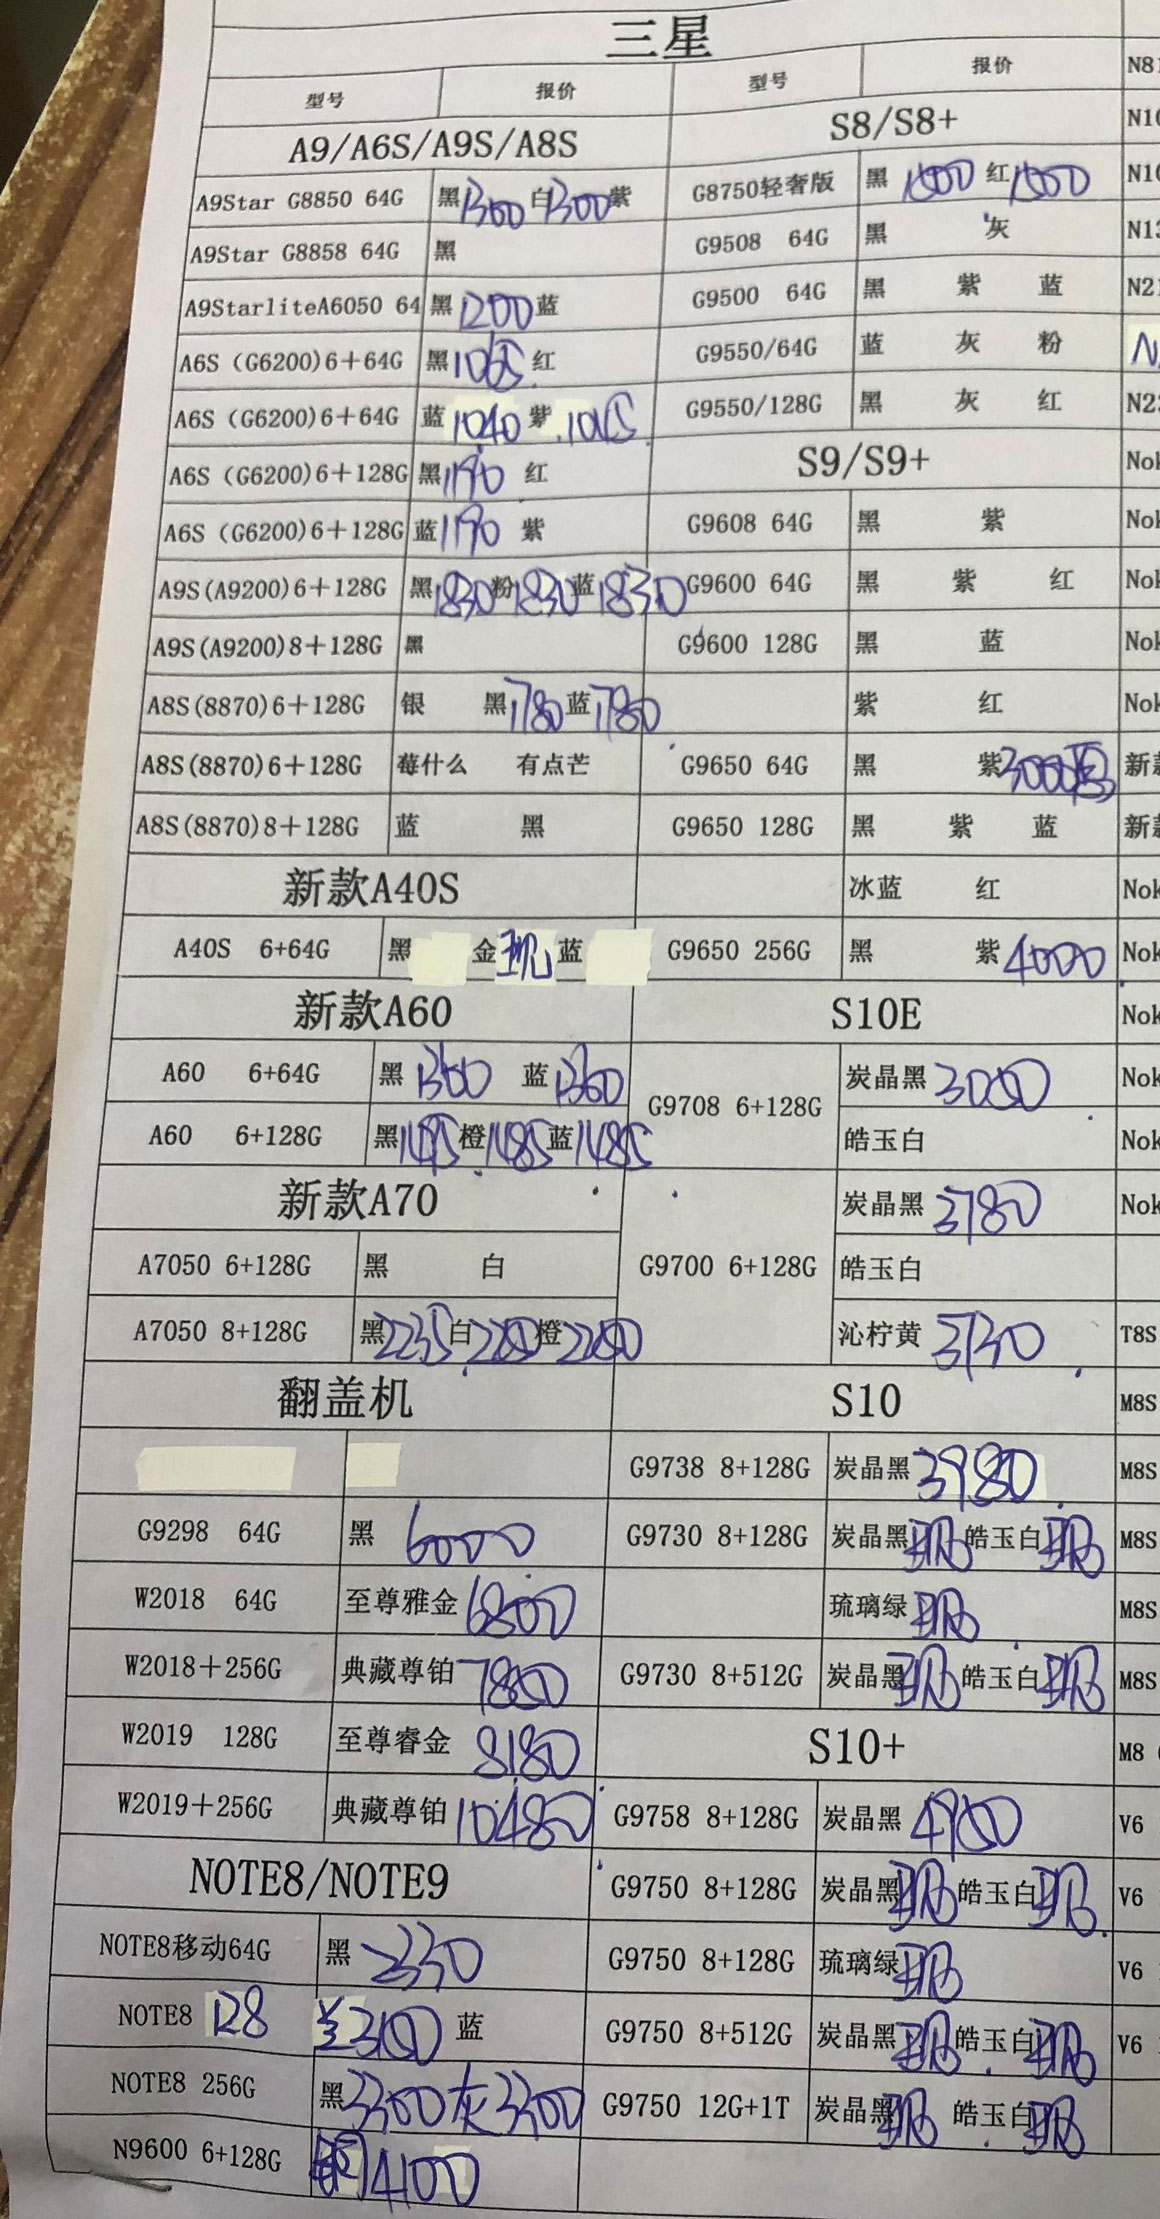 三星
型号 报价 型号 报价
N81
A9/A6S/A9S/A8S S8/S8+
A9Star G8850 64G 黑1300 白1300 紫 G8750轻奢版 黑 红
A9Star G8858 64G 黑 G9508 64G 黑 灰
A9StarliteA6050 64 黑1200 蓝 G9500 64G 黑 紫 蓝
A6S (G6200)6+64G 黑1065 红 G9550/64G 蓝 灰 粉
A6S (G6200)6+64G 蓝1040 紫 1045 G9550/128G 黑 灰 红
A6S (G6200)6+128G 黑1190 红 S9/S9+ Nok
A6S (G6200)6+128G 蓝1190 紫 G9608 64G 黑 紫 Nok
A9S(A9200)6+128G 黑1830 粉1830 蓝1830 G9600 64G 黑 紫 红 Nok
A9S(A9200)8+128G 黑 G9600 128G 黑 蓝 Nok
A8S(8870)6+128G 银 黑1780 蓝1780 紫 红 Nok
A8S(8870)6+128G 莓什么 有点芒 G9650 64G 黑 紫3000 新
A8S(8870)8+128G 蓝 黑 G9650 128G 黑 紫 蓝 新
新款A40S 冰蓝 红 Nok
A40S 6+64G 黑 金 现 蓝 G9650 256G 黑 紫4000 Nok
新款A60 S10E Nok
A60 6+64G 黑1360 蓝1360 G9708 6+128G 炭晶黑 3000 Nok
A60 6+128G 黑1495 橙1485 蓝1485 皓玉白 Nok
新款A70 炭晶黑 3780 Nok
A7050 6+128G 黑 白 G9700 6+128G 皓玉白
A7050 8+128G 黑2235 白 橙 沁柠黄 3730 T8S
翻盖机 S10 M8S
G9738 8+128G 炭晶黑 3980 M8S
G9298 64G 黑 6000 G9730 8+128G 炭晶黑现 皓玉白现 M8S
W2018 64G 至尊雅金6800 琉璃绿现 M8S
W2018+256G 典藏尊铂7800 G9730 8+512G 炭晶黑现 皓玉白现 M8S
W2019 128G 至尊睿金 8180 S10+ M8
W2019+256G 典藏尊铂10480 G9758 8+128G 炭晶黑 4900 V6
NOTE8/NOTE9 G9750 8+128G 炭晶黑现 皓玉白现 V6
NOTE8移动64G 黑 2330 G9750 8+128G 琉璃绿现 V6
NOTE8 128 3100 蓝 G9750 8+512G 炭晶黑现 皓玉白现 V6
NOTE8 256G 黑3300 灰3300 G9750 12G+1T 炭晶黑现 皓玉白现
N9600 6+128G 铜4100